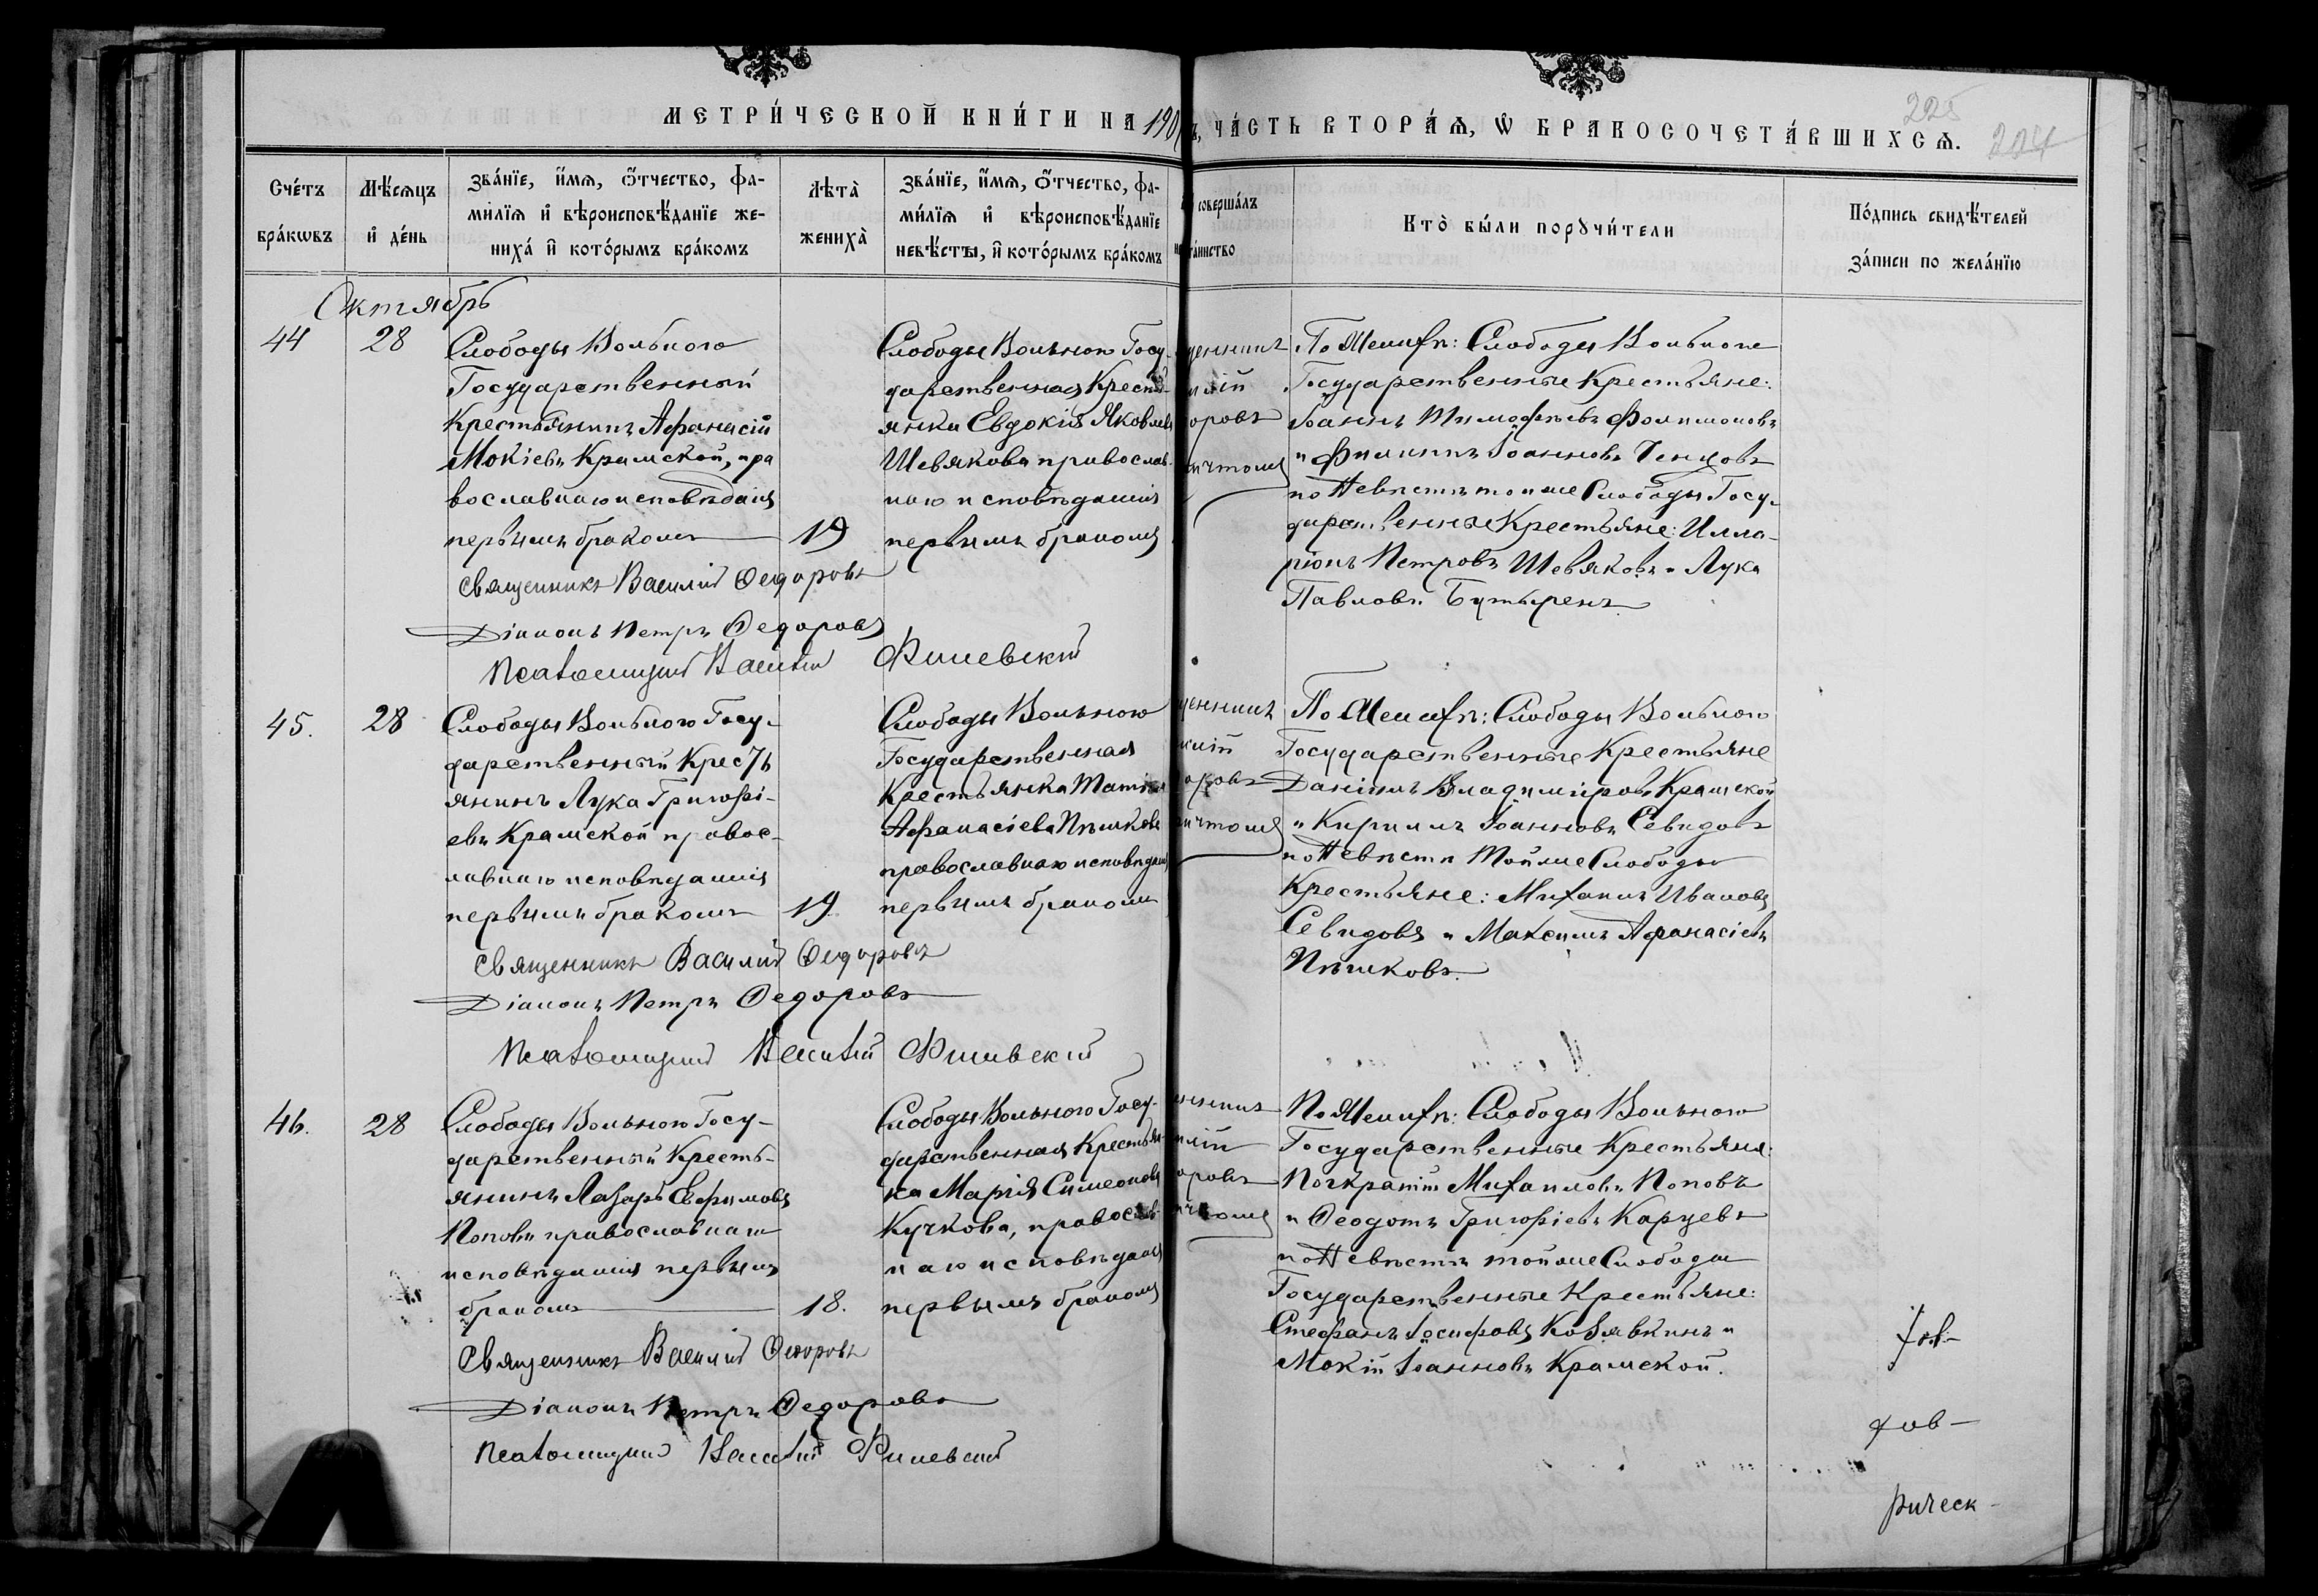 МЕТРИ́ЧЕСКОЙ КНИ́ГИ НА 190
ЧА́СТЬ ВТОРА́Ѧ, Ѡ҆ БРАКОСОЧЕТА́ВШИХСѦ.
225
204
Сче́тъ бра́кѡвъ
Мѣ́сѧцъ и҆ де́нь
Зва́нїе, и҆́мѧ, ѻ҆́тчество, фа-
ми́лїѧ и҆ вѣроисповѣ́данїе же-
ниха́ и҆ кото́рымъ бра́комъ
Лѣта̀ жениха̀
Зва́нїе, и҆́мѧ, ѻ҆́тчество, фа-
ми́лїѧ и҆ вѣроисповѣ́данїе
невѣ́сты, и҆ кото́рымъ бра́комъ
соверша́лъ
та́инство
Кто̀ бы́ли порꙋчи́тели
По́дпись свидѣ́телей
за́писи по жела́нїю
Октябрь
44
28
Слободы Вольного
Государственный
Крестьянинъ Афанасій
Мокіевъ Крамской, пра
вославнаго исповѣданія
первымъ бракомъ
19
Слободы Вольного Госу-
дарственная Кресть-
янка Евдокія Яковлева
Шевякова православ-
наго исповѣданія
первымъ бракомъ
щенникъ
илій
оровъ
ичтомъ
По Женихѣ: Слободы Вольного
Государственные Крестьяне:
Іоаннъ Тимофѣевъ Филимоновъ
и Филиппъ Іоанновъ
по Невѣстѣ тойже Слободы Госу-
дарственные Крестьяне: Илла-
ріонъ Петровъ Шевяковъ и Лука
Павловъ Бутыренъ
Священникъ Василій Ѳедоровъ
Діаконъ Петръ Ѳедоровъ
Псаломщикъ Василій Филевскій
45.
28
Слободы Вольного Госу-
дарственный Кресть
янинъ Лука Григорі-
евъ Крамской правос-
лавнаго исповѣданія
первымъ бракомъ
19
Слободы Вольного
Государственная
Крестьянка Татіана
Афанасіева Пѣшкова
православнаго исповѣданія
первымъ бракомъ
щенникъ
илій
оровъ
ичтомъ
По Женихѣ: Слободы Вольного
Государственные Крестьяне
Даніилъ Владиміровъ Крамской
и Кириллъ Іоанновъ Севидовъ
по Невѣстѣ Тойже Слободы
Крестьяне: Михаилъ Ивановъ
Севидовъ и Максимъ Афанасіевъ
Пѣшковъ.
Священникъ Василій Ѳедоровъ
Діаконъ Петръ Ѳедоровъ
Псаломщикъ Василій Филевскій
46.
28
Слободы Вольного Госу-
дарственный Кресть-
янинъ Лазарь Ефимовъ
Поповъ православнаго
исповѣданія первымъ
бракомъ
18.
Слободы Вольного Госу-
дарственная Крестьян-
ка Марія Симеонова
Кучкова, православ-
наго исповѣданія
первымъ бракомъ
енникъ
илій
оровъ
ичтомъ
По Женихѣ: Слободы Вольного
Государственные Крестьяне:
Панкратій Михаиловъ Поповъ
и Ѳеодотъ Григоріевъ Карцевъ
по Невѣстѣ тойже Слободы
Государственные Крестьяне:
Стефанъ Іосифовъ Козявкинъ и
Мокій Іоанновъ Крамской.
Священникъ Василій Ѳедоровъ
Діаконъ Петръ Ѳедоровъ
Псаломщикъ Василій Филевскій
ов-
рическ-